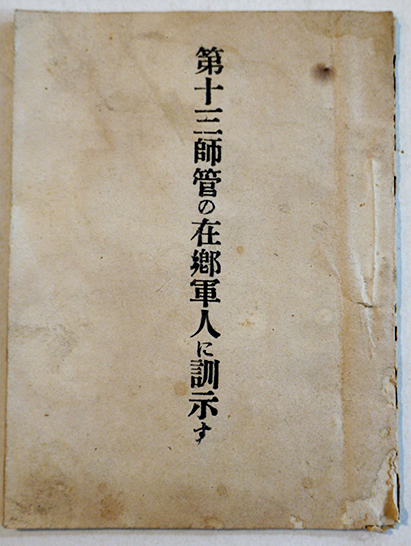 第十三師管の在郷軍人に訓示す